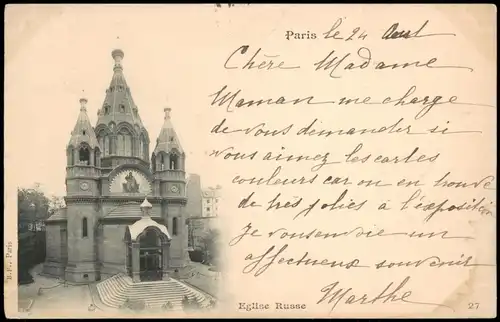 Paris le 24 Aout
Chère Madame
Maman me charge
de vous demander si
vous aimez les cartes
couleurs car on en trouve
de très jolies à l'exposition
Je vous envoie un
affectueux souvenir
Marthe
Eglise Russe
27
B.F., Paris